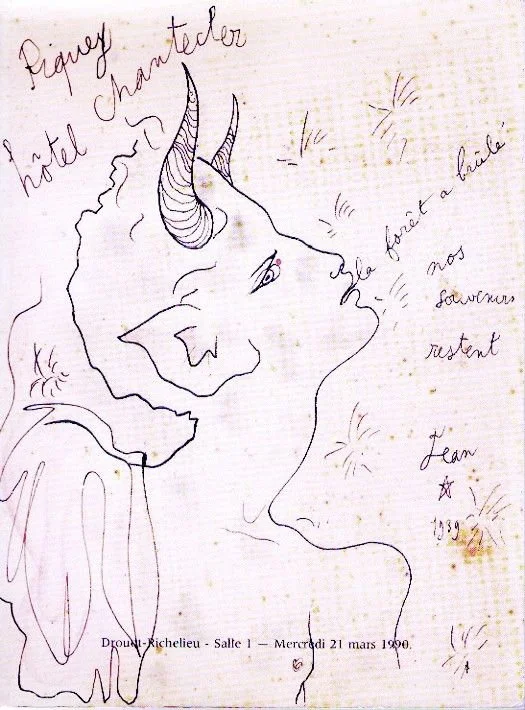 Piquey
hôtel Chantecler
la forêt a brûlé
nos
souvenirs
restent
Jean
1939
Drouot-Richelieu - Salle 1 — Mercredi 21 mars 1990.